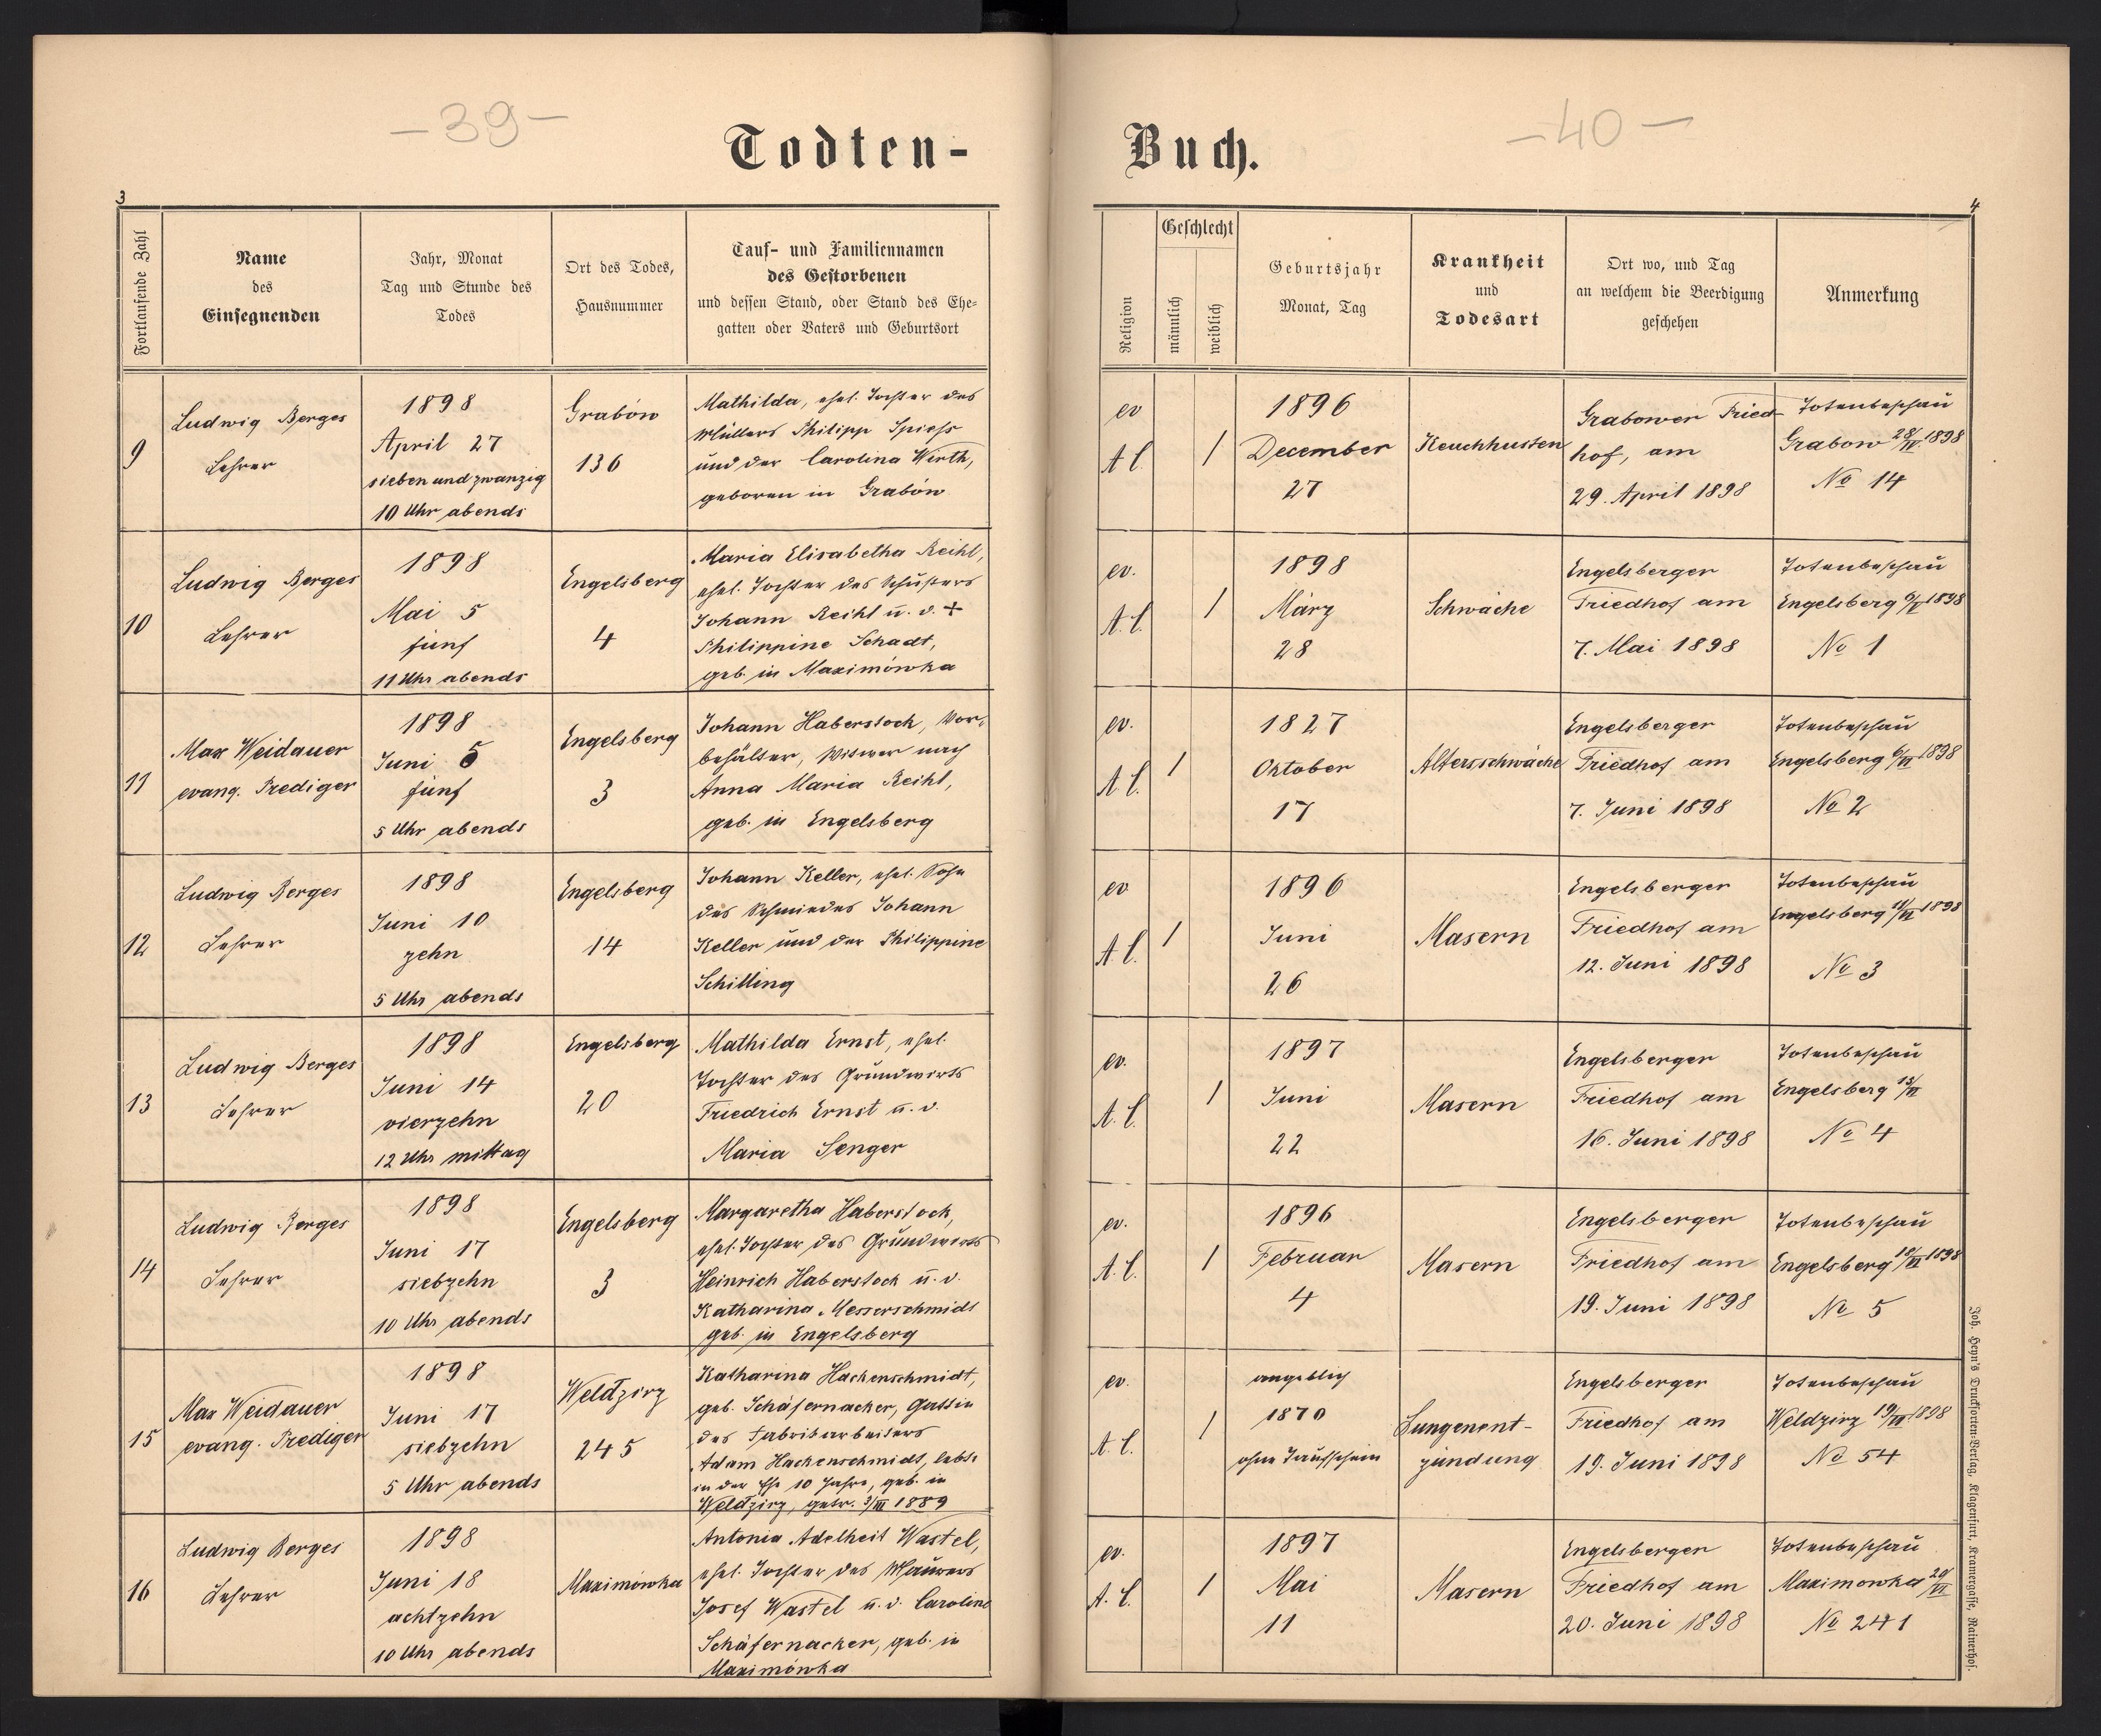 -39-
Todten-
3
Fortlaufende Zahl
Name
des
Einsegnenden
Jahr, Monat
Tag und Stunde des
Todes
Ort des Todes,
Hausnummer
Tauf- und Familiennamen
des Gestorbenen
und dessen Stand, oder Stand des Ehe-
gatten oder Vaters und Geburtsort
9
Ludwig Berges
Lehrer
1898
April 27
siebenundzwanzig
10 Uhr abends
Grabów
136
Mathilda, ehel. Tochter des
Müllers Philipp Spiess
und der Carolina Wirth,
geboren in Grabów
10
Ludwig Berges
Lehrer
1898
Mai 5
fünf
11 Uhr abends
Engelsberg
4
Maria Elisabetha Reihl,
ehel. Tochter des Schusters
Johann Reihl u. d. +
Philippine Schadt,
geb. in Maximówka
11
Max Weidauer
evang. Prediger
1898
Juni 5
fünf
5 Uhr abends
Engelsberg
3
Johann Haberstock, Vor-
behälter, Witwer nach
Anna Maria Reihl,
geb. in Engelsberg
12
Ludwig Berges
Lehrer
1898
Juni 10
zehn
5 Uhr abends
Engelsberg
14
Johann Keller, ehel. Sohn
des Schmiedes Johann
Keller und der Philippine
Schilling
13
Ludwig Berges
Lehrer
1898
Juni 14
vierzehn
12 Uhr mittag
Engelsberg
20
Mathilda Ernst, ehel.
Tochter des Grundwirts
Friedrich Ernst u. d.
Maria Senger
14
Ludwig Berges
Lehrer
1898
Juni 17
siebzehn
10 Uhr abends
Engelsberg
3
Margaretha Haberstock,
ehel. Tochter des Grundwirts
Heinrich Haberstock u. d.
Katharina Messerschmidt
geb. in Engelsberg
15
Max Weidauer
evang. Prediger
1898
Juni 17
siebzehn
5 Uhr abends
Weldzirz
245
Katharina Hackenschmidt,
geb. Schäfernacker, Gattin
des Fabriksarbeiters
Adam Hackenschmidt, lebte
in der Ehe 10 Jahre, geb. in
Weldzirz, getr. 3/III 1889
16
Ludwig Berges
Lehrer
1898
Juni 18
achtzehn
10 Uhr abends
Maximówka
Antonia Adelheit Wastel,
ehel. Tochter des Maurers
Josef Wastel u. d. Caroline
Schäfernacker, geb. in
Maximówka
-40-
Buch.
4
Religion
Geschlecht
männlich
weiblich
Geburtsjahr
Monat, Tag
Krankheit
und
Todesart
Ort wo, und Tag
an welchem die Beerdigung
geschehen
Anmerkung
ev
A C.
1
1896
December
27
Keuchhusten
Grabower Fried-
hof, am
29. April 1898
Totenbeschau
Grabow 28/IV 1898
No 14
ev.
A. C.
1
1898
März
28
Schwäche
Engelsberger
Friedhof am
7. Mai 1898
Totenbeschau
Engelsberg 6/V 1898
No 1
ev.
A. C.
1
1827
Oktober
17
Altersschwäche
Engelsberger
Friedhof am
7. Juni 1898
Totenbeschau
Engelsberg 6/VI 1898
No 2
ev
A. C.
1
1896
Juni
26
Masern
Engelsberger
Friedhof am
12. Juni 1898
Totenbeschau
Engelsberg 11/VI 1898
No 3
ev.
A. C.
1
1897
Juni
22
Masern
Engelsberger
Friedhof am
16. Juni 1898
Totenbeschau
Engelsberg 15/VI
No 4
ev.
A. C.
1
1896
Februar
4
Masern
Engelsberger
Friedhof am
19. Juni 1898
Totenbeschau
Engelsberg 18/VI 1898
No 5
ev.
A. C.
1
angeblich
1870
ohne Taufschein
Lungenent-
zündung
Engelsberger
Friedhof am
19. Juni 1898
Totenbeschau
Weldzirz 19/VI 1898
No 54
ev.
A. C.
1
1897
Mai
11
Masern
Engelsberger
Friedhof am
20. Juni 1898
Totenbeschau
Maximowka 20/VI
No 241
Joh. Heyn's Drucksorten-Verlag, Klagenfurt, Kramergasse, Rainerhof.